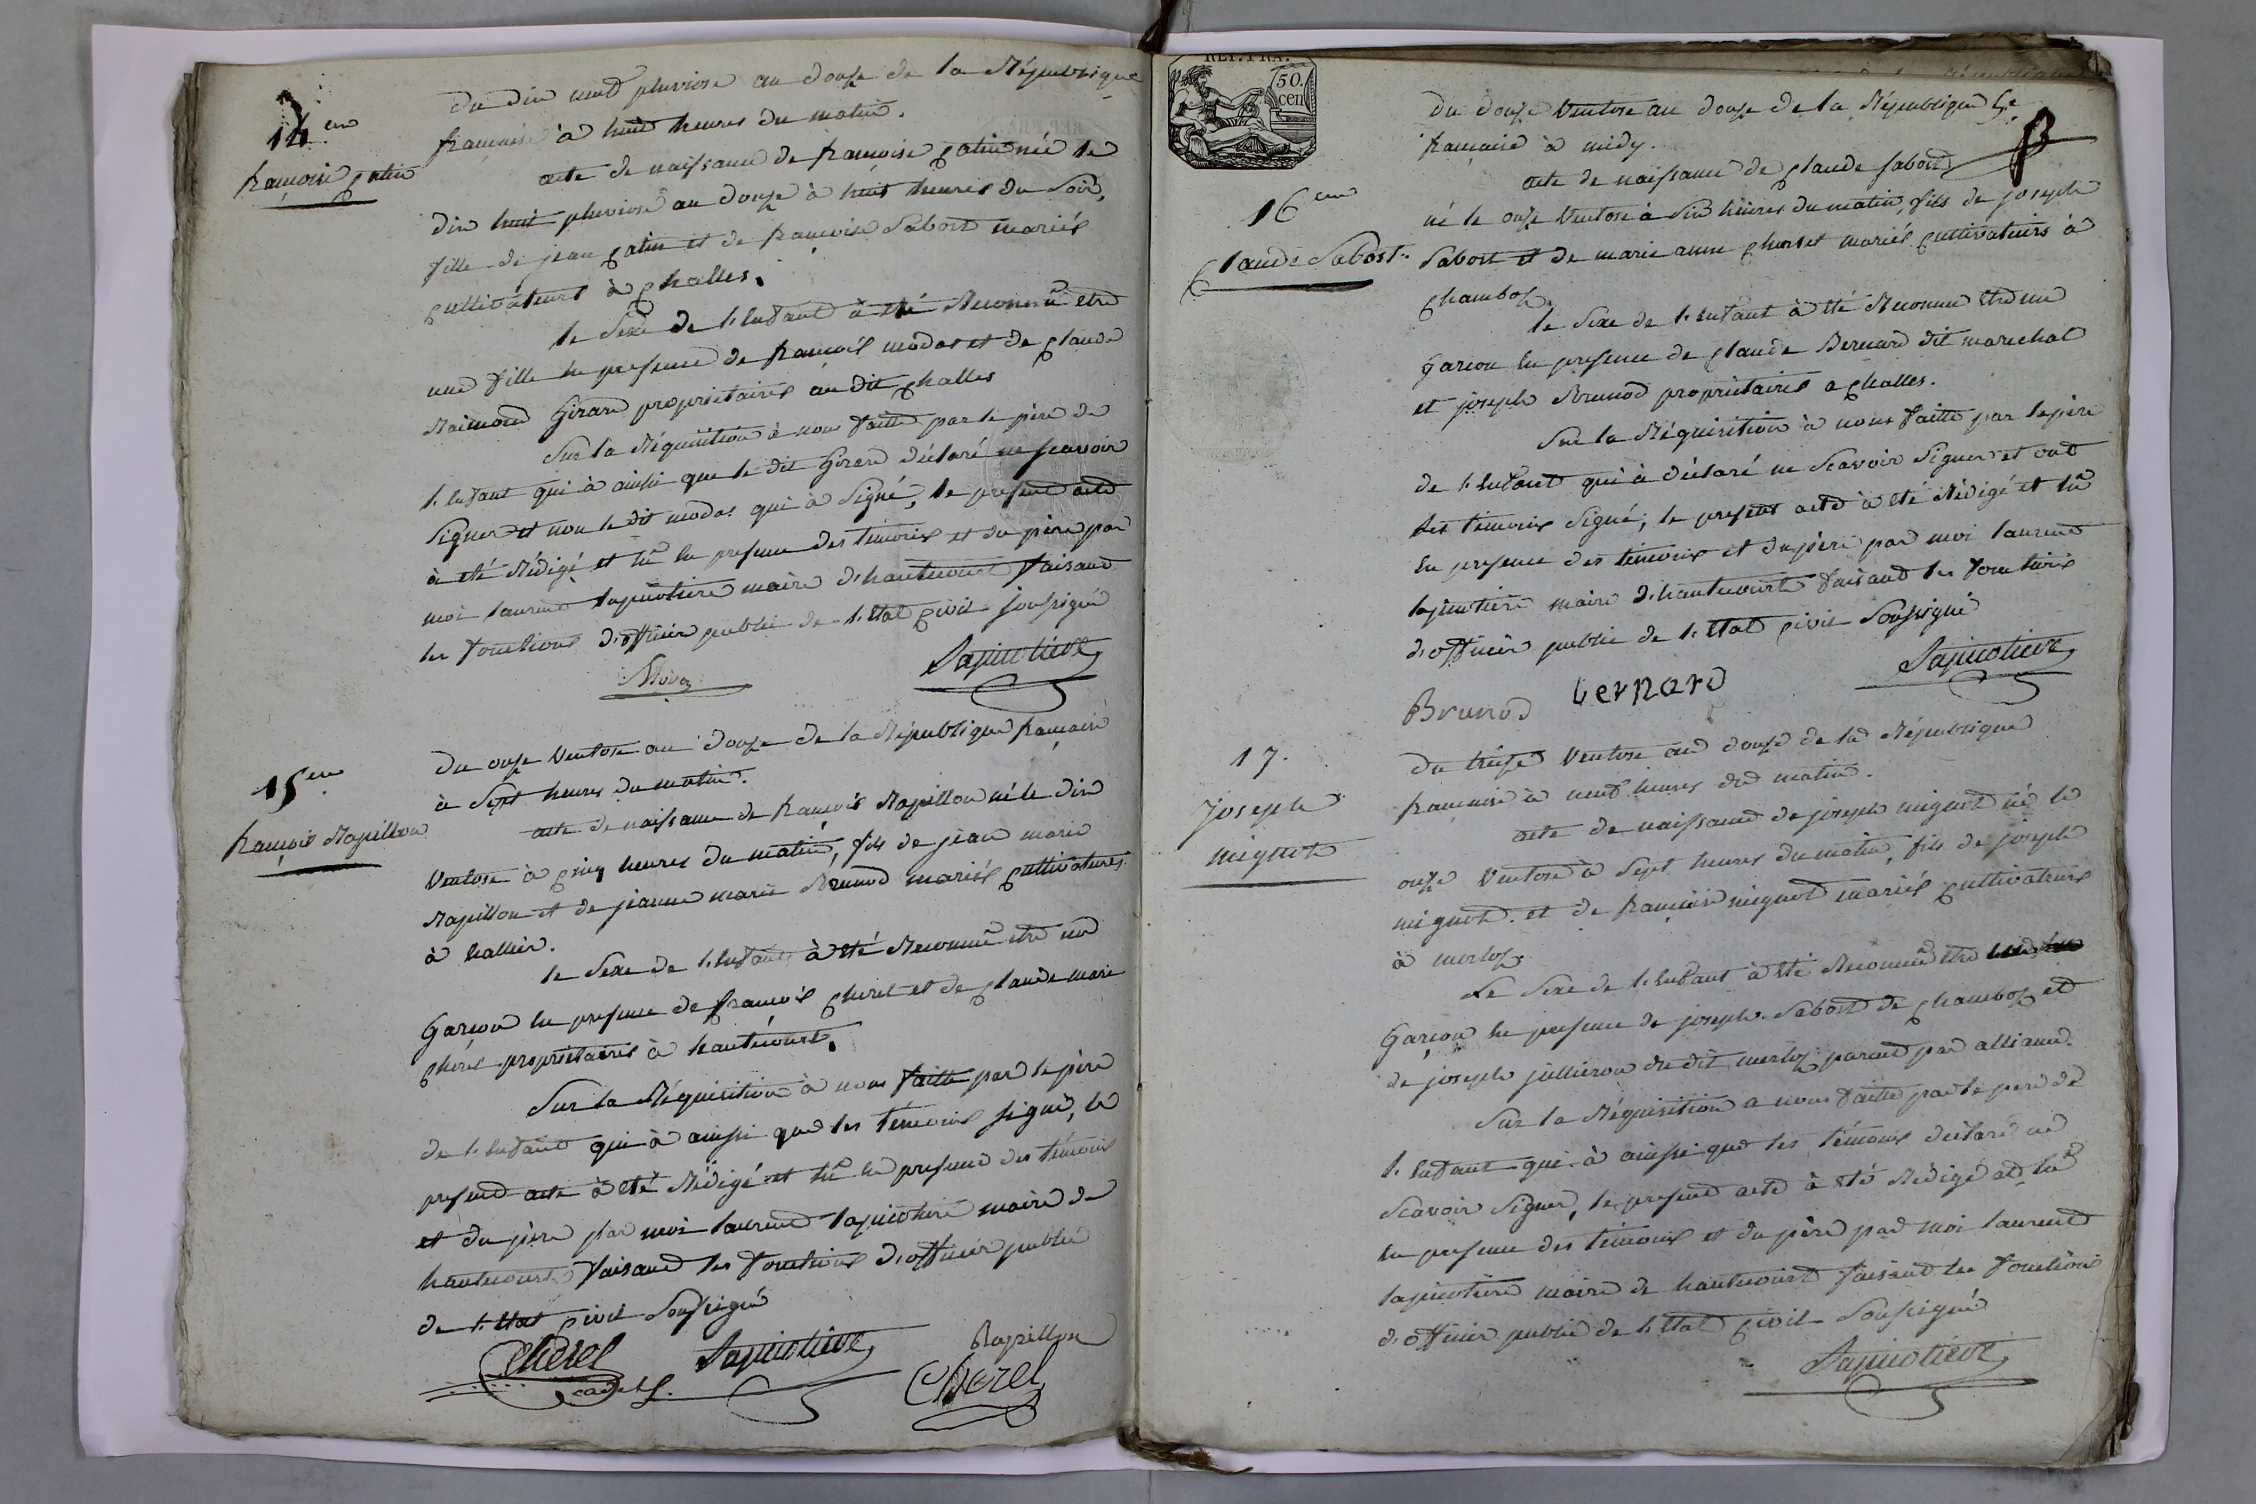 14eme
françoise gatin
du dix neuf pluviose an douze de la République
française à huit heures du matin.
acte de naissance de françoise gatin née le
dix huit pluviose an douze à huit heures du soir,
fille de jean gatin et de françoise Sabort mariés
cultivateurs à challes.
le sexe de l'enfant à été Reconnu etre
une fille en presence de françois modas et de claude
Raimond Girard propriétaires au dit challes
Sur la Réquisition à nous faitte par le père de
l'enfant qui à ainsi que le dit Girard déclaré ne scavoir
signer et non le dit modas qui à signé, le present acte
à été Rédigé et lû en presence des témoins et du père par
moi laurent lapicotiere maire d'hautecourt faisant
les fonctions d'officier public de l'état civil soussigné
Lapicotiere
15eme
françois Rapillon
du onze ventose an douze de la République française
à sept heures du matin.
acte de naissance de françois Rapillon né le dix
ventose à cinq heures du matin, fils de jean marie
Rapillon et de jeanne marie Brunod mariés cultivateurs
à hallier.
le sexe de l'enfant à été Reconnu etre un
Garçon en presence de françois cherel et de claude marie
cherel propriétaires à hautecourt.
Sur la Réquisition à nous faitte par le père
de l'enfant qui à ainsi que les témoins signé, le
present acte à été Rédigé et lû en presence des témoins
et du père par moi laurent lapicotiere maire de
hautecourt faisant les fonctions d'officier public
de l'état civil soussigné
Cherel Lapicotiere Rapillon
cadet Cherel
REP. FRA.
50.
cen
16eme
Claude Sabort
du douze ventose an douze de la République
française à midy.
acte de naissance de claude sabort
né le onze ventose à six heures du matin, fils de joseph
Sabort et de marie anne mariés cultivateurs à
chamboz.
le sexe de l'enfant à été Reconnu etre un
Garçon en presence de claude Bernard dit marechal
et joseph Brunod propriétaires a challes.
Sur la Réquisition à nous faitte par le père
de l'enfant qui à déclaré ne scavoir signer et ont
les témoins signé, le present acte à été Rédigé et lû
en presence des témoins et du père par moi laurent
lapicotiere maire d'hautecourt faisant les fonctions
d'officier public de l'état civil soussigné
Lapicotiere
Brunod bernard
17.
Joseph
mignot
du treize ventose an douze de la République
française à neuf heures du matin.
acte de naissance de joseph mignot né le
onze ventose à sept heures du matin, fils de joseph
mignot et de françoise mignot mariés cultivateurs
à merloz.
Le sexe de l'enfant à été Reconnu etre un
Garçon en presence de joseph Sabort de chamboz et
de joseph jullieron du dit merloz parent par alliance.
Sur la Réquisition a nous faitte par le pere de
l'enfant qui à ainsi que les témoins déclaré ne
scavoir signer, le present acte à été Rédigé et lû
en presence des témoins et du père par moi laurent
lapicotiere maire de hautecourt faisant les fonctions
d'officier public de l'état civil soussigné
Lapicotiere